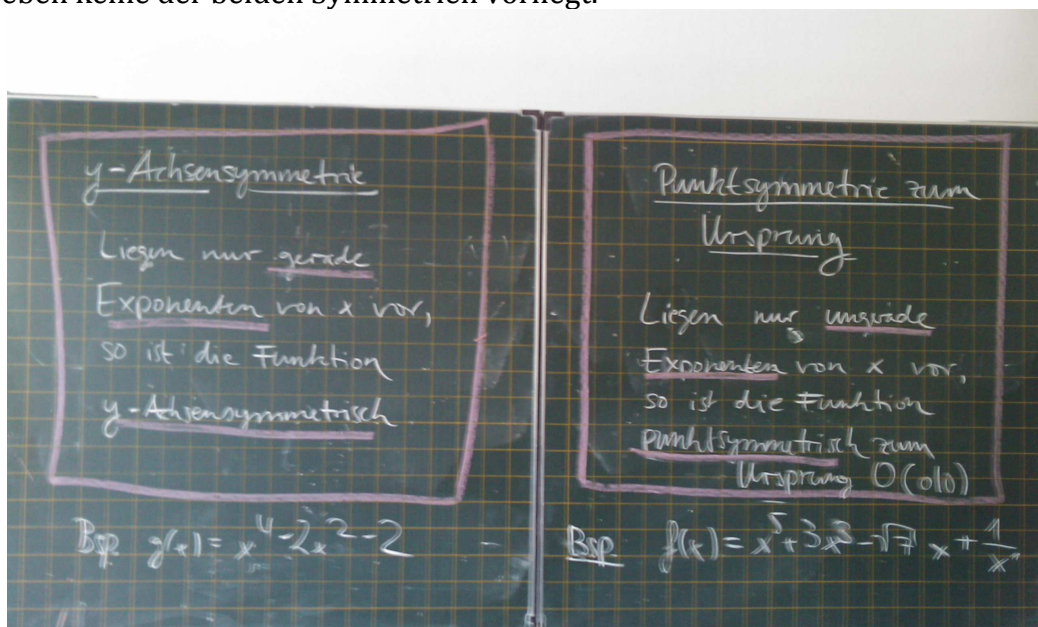 eben keine der beiden Symmetrien vorliegt.
y-Achsensymmetrie
Liegen nur gerade
Exponenten von x vor,
so ist die Funktion
y-Achsensymmetrisch
Bsp g(x) = x⁴-2x²-2
Punktsymmetrie zum
Ursprung
Liegen nur ungrade
Exponenten von x vor,
so ist die Funktion
punktsymmetrisch zum
Ursprung O(0|0)
Bsp f(x) = x⁵+3x³-√7 x + 1/x